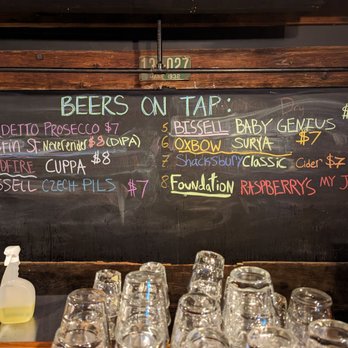 BEERS ON TAP:
DETTO PROSECCO $7
NEVERENDER $8 (DIPA)
CUPPA $8
SSELL CZECH PILS $7
5 BISSELL BABY GENIUS
6 OXBOW SURYA $7
7 Shacksbury Classic Cider $7
8 Foundation RASPBERRYS MY J